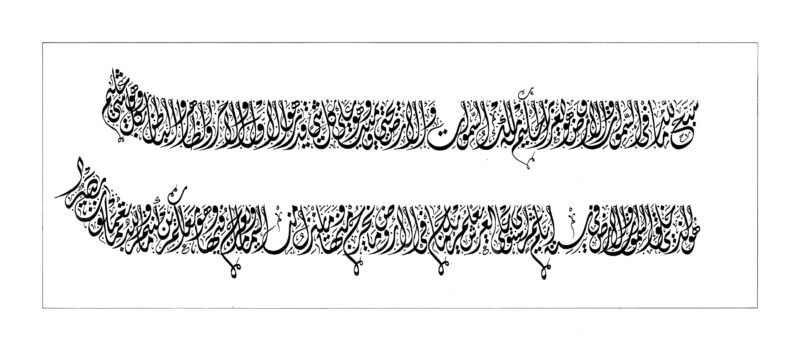 سبح لله ما في السموات والارض وهو العزيز الحكيم له ملك السموات والارض يحيي ويميت وهو على كل شيء قدير هو الاول والاخر والظاهر والباطن وهو بكل شيء عليم
هو الذي خلق السموات والارض في ستة ايام ثم استوى على العرش يعلم ما يلج في الارض وما يخرج منها وما ينزل من السماء وما يعرج فيها وهو معكم اين ما كنتم والله بما تعملون بصير